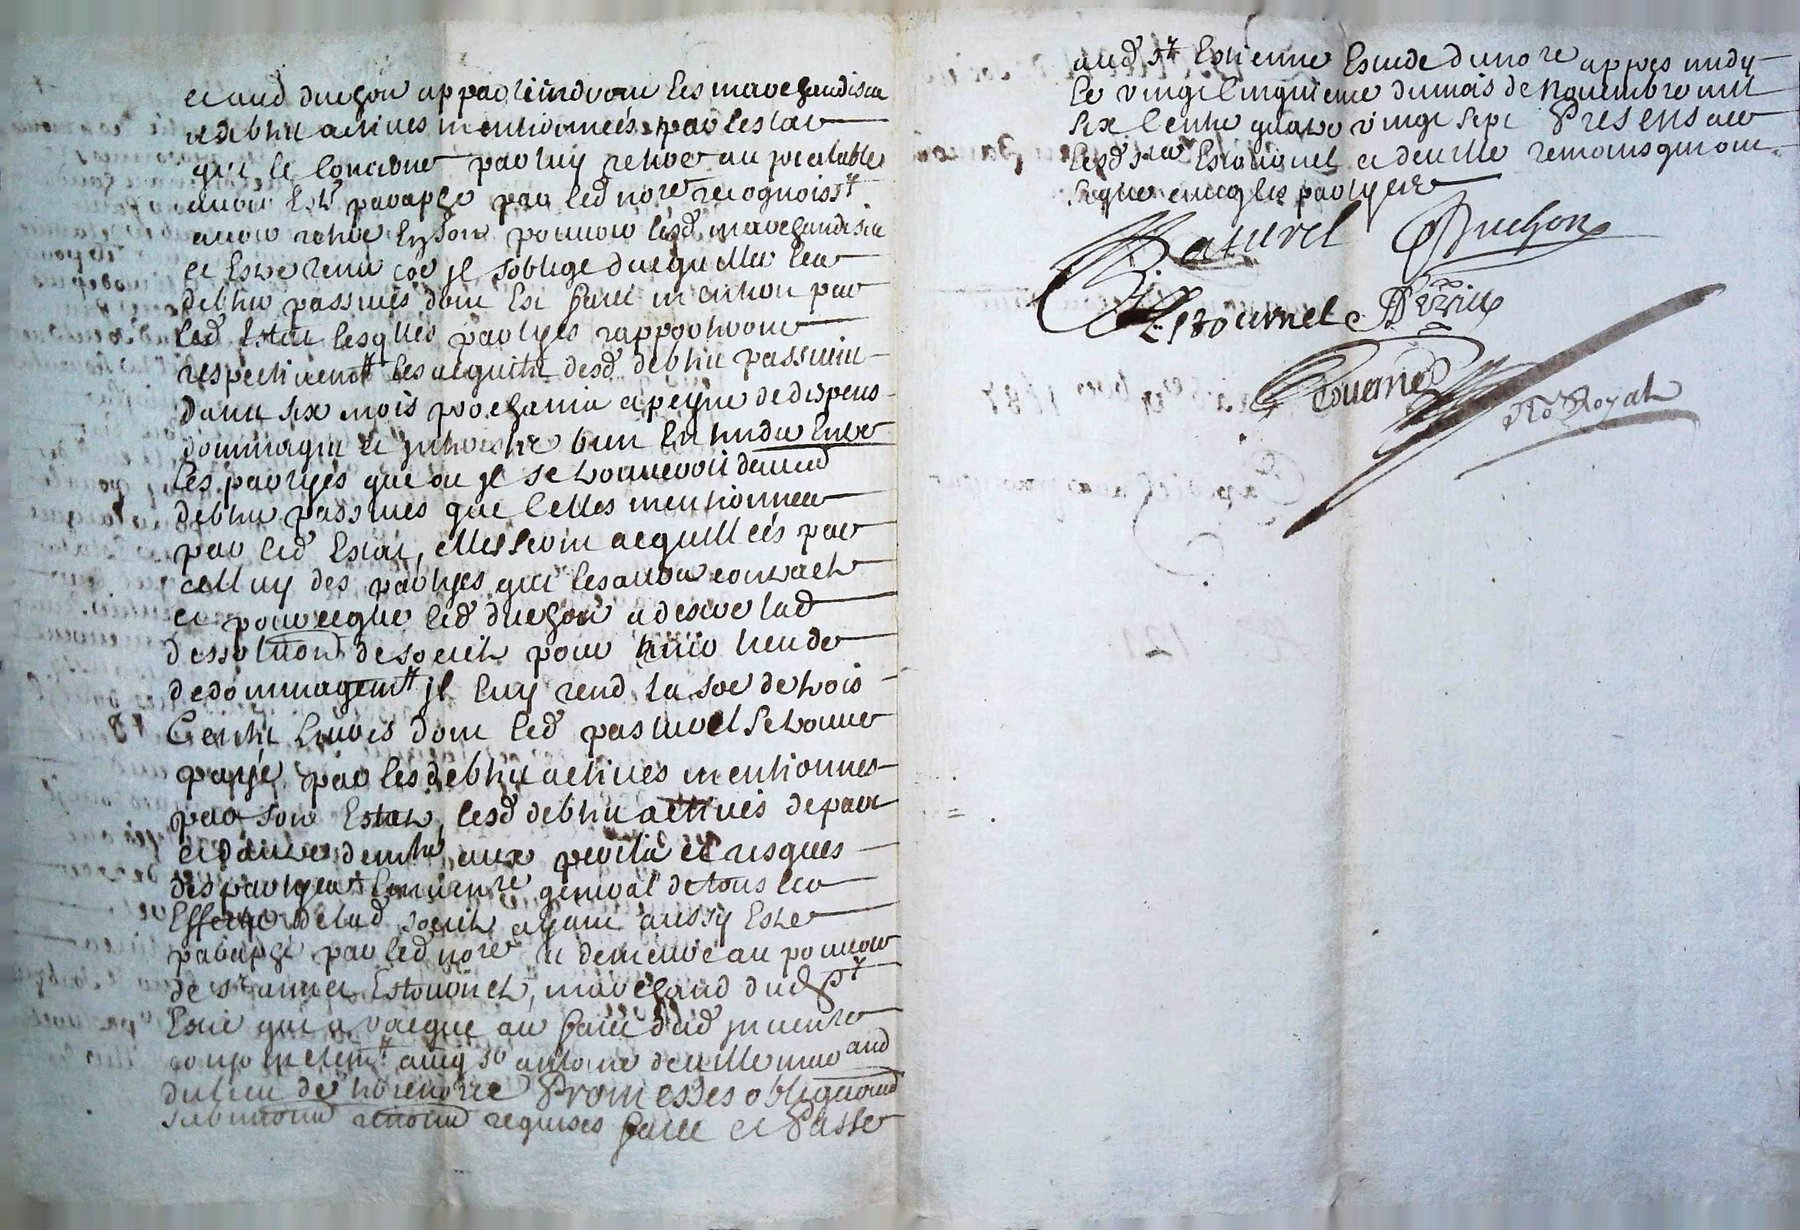 et aud duchon appartiendront les marchandises
et debtes actives mentionnées par lestat
qui le concerne par luy retiré au prealable
avoir Esté paraphé par led nore recognoisst
avoir retiré En son pouvoir lesd marchandises
et Estre tenu coe jl soblige dacquitter les
debtes passives dont Est faite mention par
led Estat lesqlles partyes rapporteront
respectivemt les acquits desd debtes passives
dans six mois prochains a peyne de despens
dommages et jnterests bien Entendu Entre
les partyes que ou jl se trouveroit dautres
debtes passives que celles mentionnees
par led Estat, elles seront acquittées par
celluy des partyes qui les aura contracté
et parceque led duchon a desiré lad
dessolution de societé pour luy tenir lieu de
dedommagemt jl luy rend la soe de trois
Cents livres dont led pasturel se trouve
payé par les debtes actives mentionnes
par son Estat, lesd debtes actives de part
et dautre demeurent aux perils et risques
des partyes Linventre general de tous les
Effects de lad societé ayant aussy Esté
paraphé par led nore et demeuré au pouvoir
de sr Estournel, marchand dud St
Estie qui a vacqué au fait dud jnventre
conjoinctemt avec sr antoine deville marand
du lieu de Promesses obligaons
submissions renons requises fait et Passé
aud St Estienne Estude dud nore appres midy
le vingt cinquieme du mois de Novembre mil
six Cents quatre vingt sept Presens
lesd srs Estournel et deville temoins qui ont
signé avecq les partyes
Pasturel Duchon
Estournel Deville
Tournel No Royal